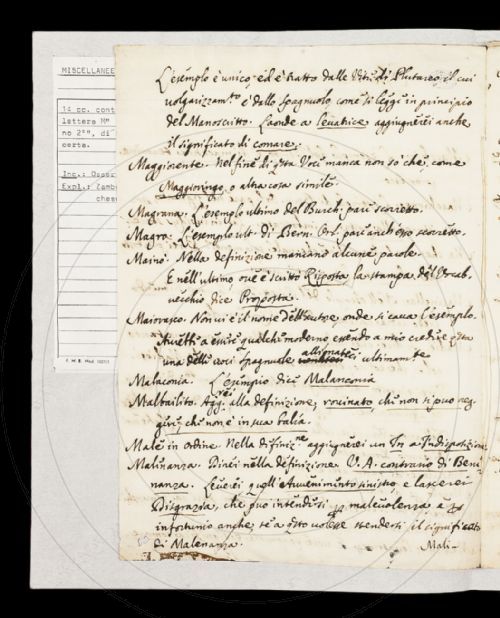 MISCELLANEE
14 cc. cont
lettera M
no 2°", di
certa.
Inc.: Osser
Expl.: Zamb
ches
L'esemplo è unico, ed è tratto dalle Vite di Plutarco, il cui
volgarizzam.to è dallo Spagnuolo, come si leggi in principio
del Manoscritto. Laonde a Levatrice aggiugnerei anche
il significato di comare.
Maggionente. Nel fine di qsta Voce manca non so chè, come
Maggioringo, o altra cosa simile.
Magrana. L'esemplo ultimo del Burch. pare scorretto.
Magro. L'esemplo ult. di Bern. Orl. par anch'esso scorretto.
Maino. Nella definizione mancano alcune parole.
E nell'ultimo, ove è scritto Risposta la stampa del Vocab.
vecchio dice Proposta.
Maiorasco. Non vi è il nome dell'autore, onde si cava l'esemplo.
Avrebbe a essere qualche moderno, essendo a mio credere qsta
una delle voci Spagnuole allignateci ultimam.te
Malaconia. L'esempio dice Malanconia
Malbailito. Agg. alla definizione, rovinato, chi non si può reg-
gere, chi non è in sua balìa.
Male in ordine. Nella difiniz.ne aggiugnerei un In a Indisposizion
Malenanza. Direi nella definizione V. A. contrario di Beni-
nanza. Leverei quell'Avvenimento sinistro, e lascerei
Disgrazia, che può intendersi malevolenza, e
infortunio anche, se a qsto volesse stendersi il significato
di Malenanza.
Mali-